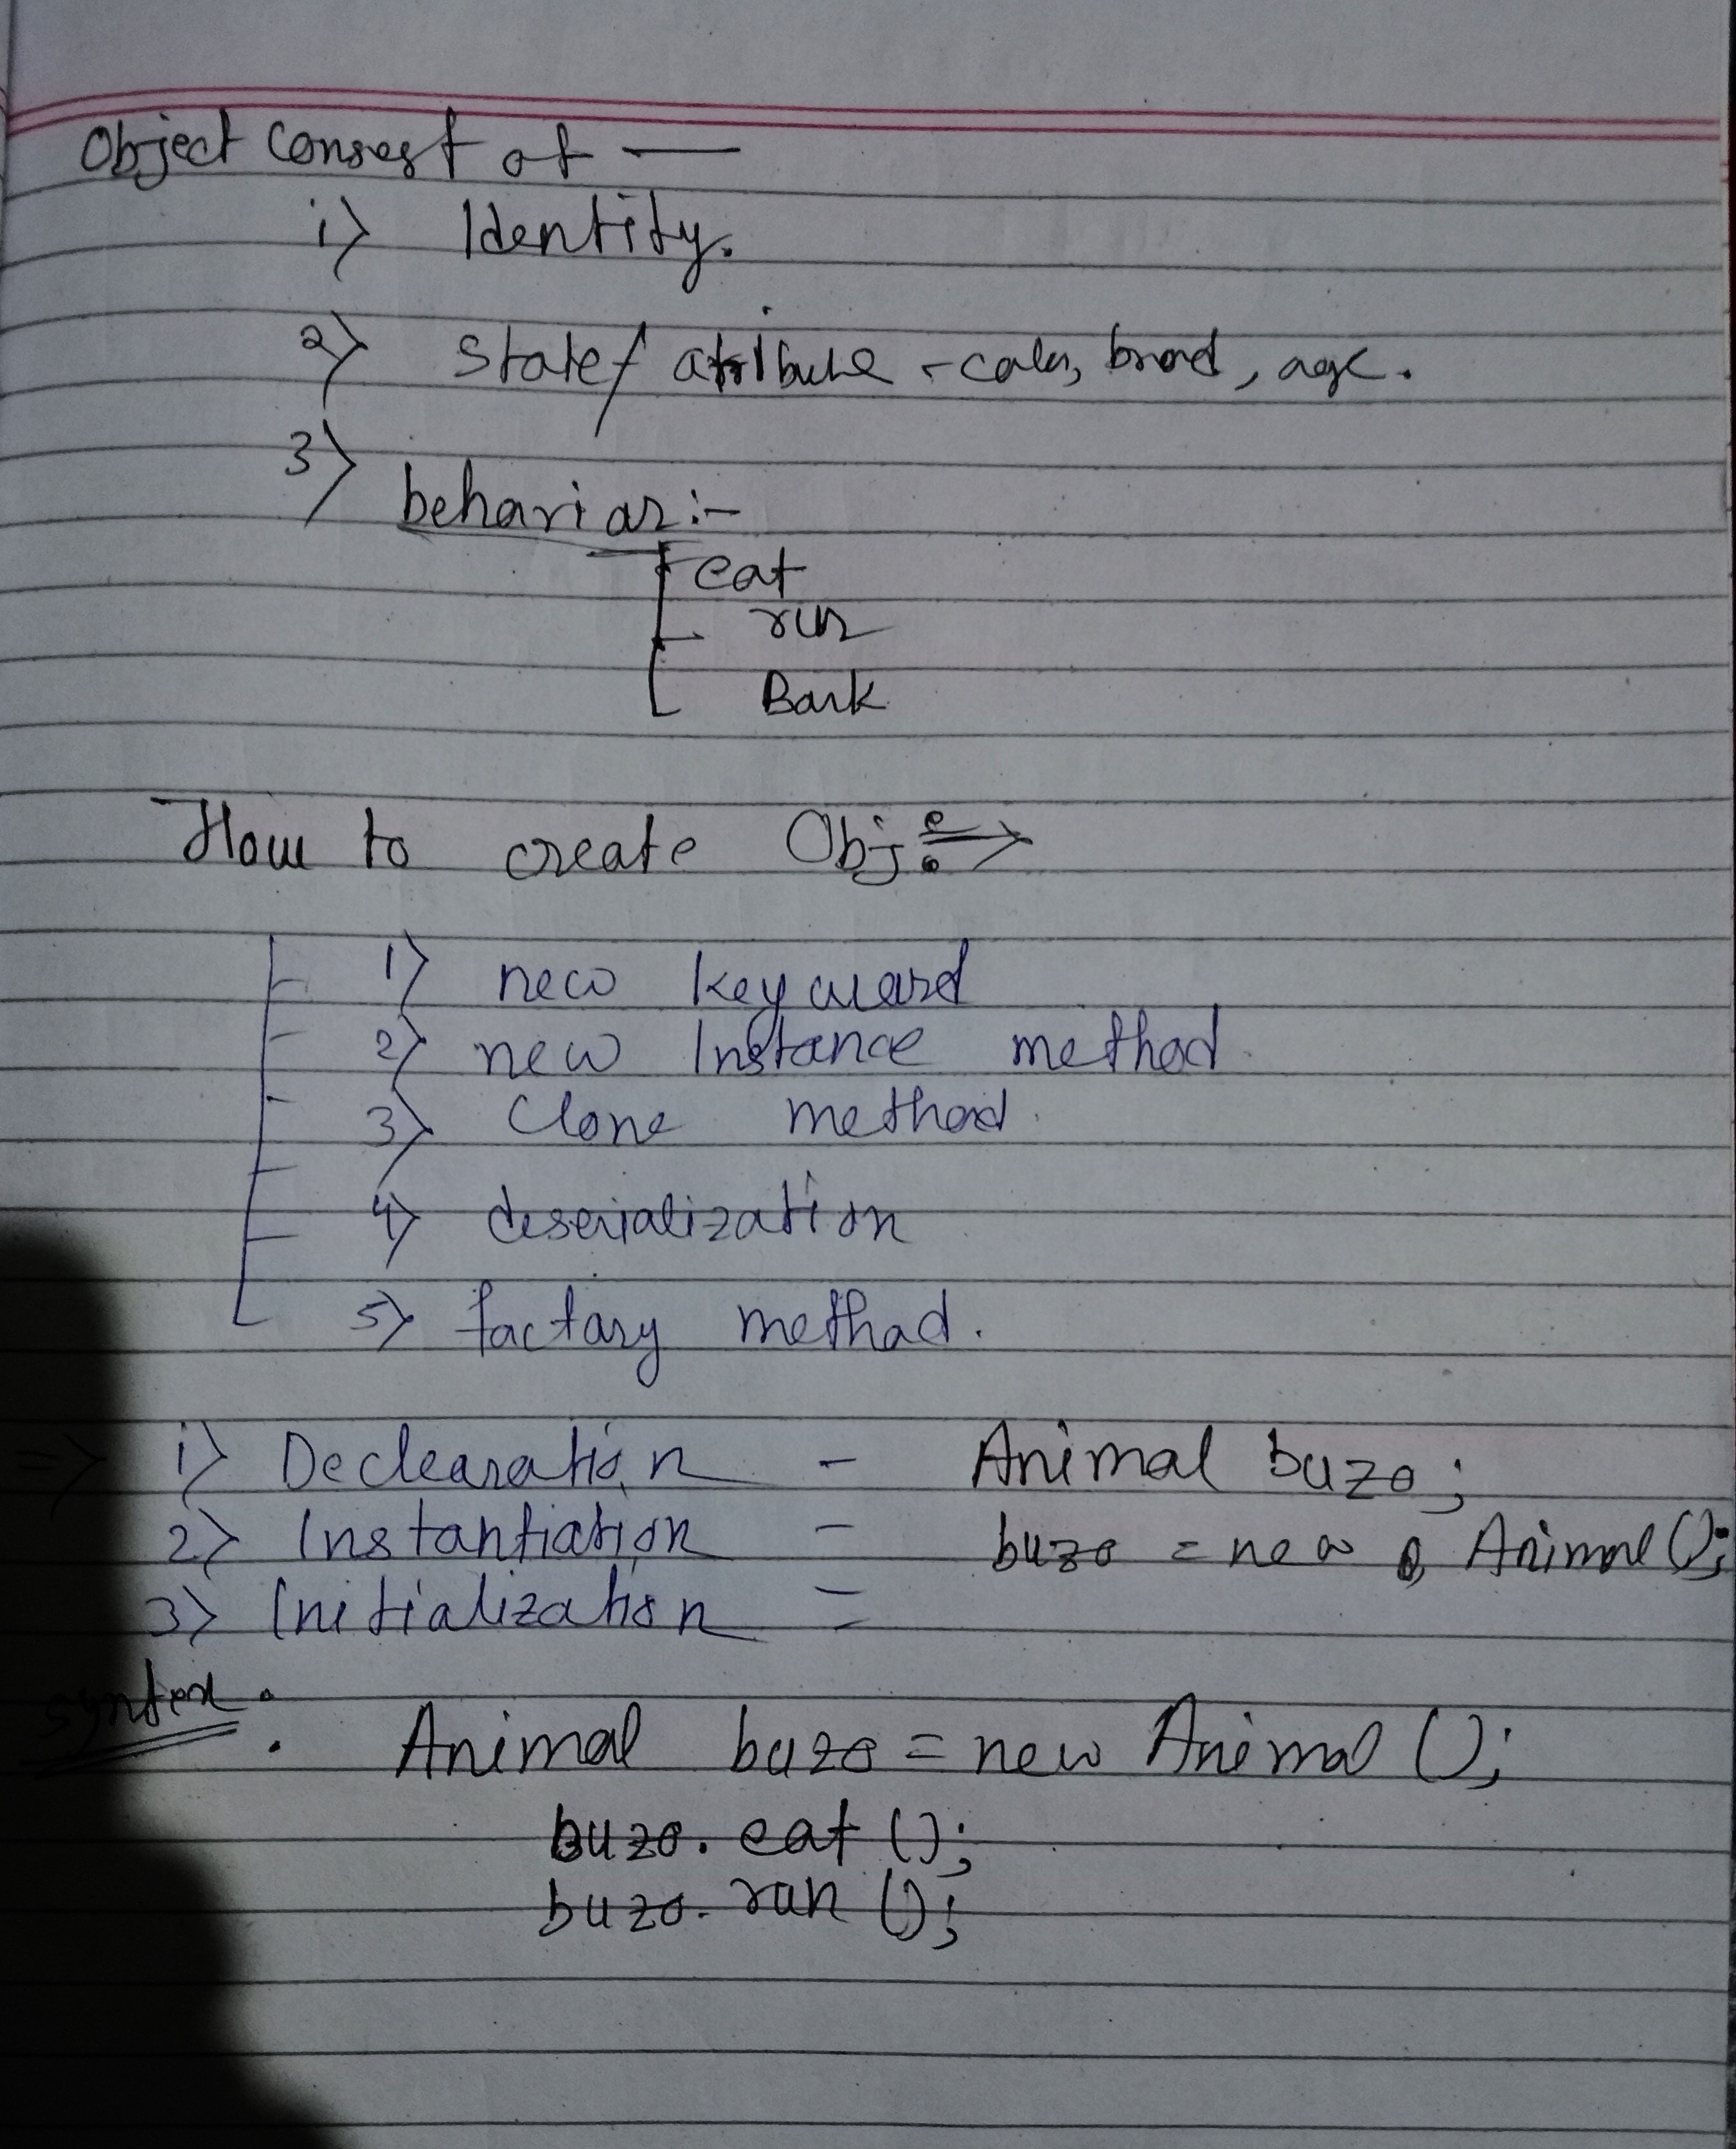 Object consest of —
i) Identity.
2) state/ attribute - color, breed, age.
3) behavior :-
eat
run
Bark
How to create Obj :⇒
1) new keyword
2) new Instance method
3) Clone method
4) deserialization
5) factory method.
⇒ i) Declearation - Animal buzo;
2) Instantiation - buzo = new Animal ();
3) Initialization =
syntex :
Animal buzo = new Animal ();
buzo. eat ();
buzo. run ();